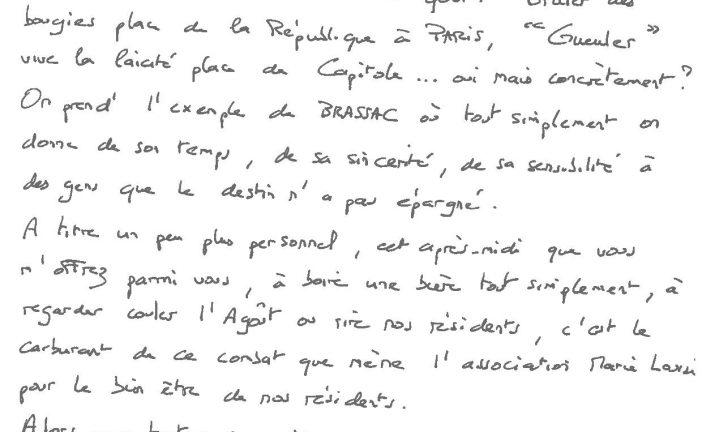 quoi ? Brûler des
bougies place de la République à PARIS, "Gueuler"
vive la laïcité place du Capitole... oui mais concrètement ?
On prend l'exemple de BRASSAC où tout simplement on
donne de son temps, de sa sincerité, de sa sensibilité à
des gens que le destin n'a pas épargné.
A titre un peu plus personnel, cet après-midi que vous
m'offrez parmi vous, à boire une bière tout simplement, à
regarder couler l'Agoût ou rire nos résidents, c'est le
carburant de ce combat que mène l'association Marie Louise
pour le bien être de nos résidents.
Alors